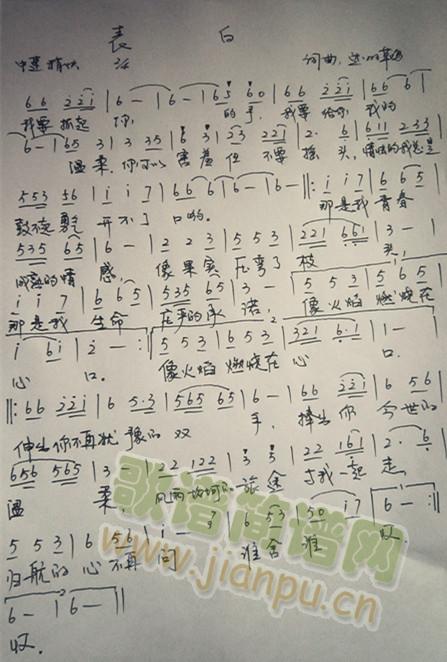 表白
中速 稍快 词曲：
66 221 | 6 — | 6 — | 65 60 | 66 221 | 66 6 |
我要 抓起 你 的手 我要 给你 我的
6 — | 65 3 | 3 35 | 6 3 | 23 221 | 2· 6 | 611 233 |
温柔 你可以 害羞 但 不要 摇头
553 56 | i i 7 | 66 6 | 6 — | 6 — ‖: i i 7 | 6 6 5 |
开不了 口哟 那是我 青春
535 65 | 6 — | 2 2 3 | 5 5 3 | 221 651 | 3 — |
成熟的情 感 像果实 压弯了 枝 头
i i 7 | 6 6 5 | 535 65 | 3 — | 5 5 3 | 5 6 5 |
那是我 生命 庄严的承 诺 像火焰 燃烧在
i 6i | 2 — :‖ 5 5 3 | 6 5 3 | 321 6·1 | 1 — |
心 口 像火焰 燃烧在 心 口
‖: 66 22i | 6 5·3 | 565 65 | 6 — | 66 22i | 6 56 |
伸出 你不再犹 豫的 双 手 捧出 你 今世的
656 565 | 3 — | 22 122 | 3 5 | 22 161 | 2· 6 |
温 柔 风雨 旅途 与我一起 走
5 5 3 | 6 56 | i — | 7 | 6 53 | 50 | i7 | 6 — :‖
归航的 心不再 问 谁舍 谁 收
6 — | 6 — ‖
收
歌谱简谱网
www.jianpu.cn